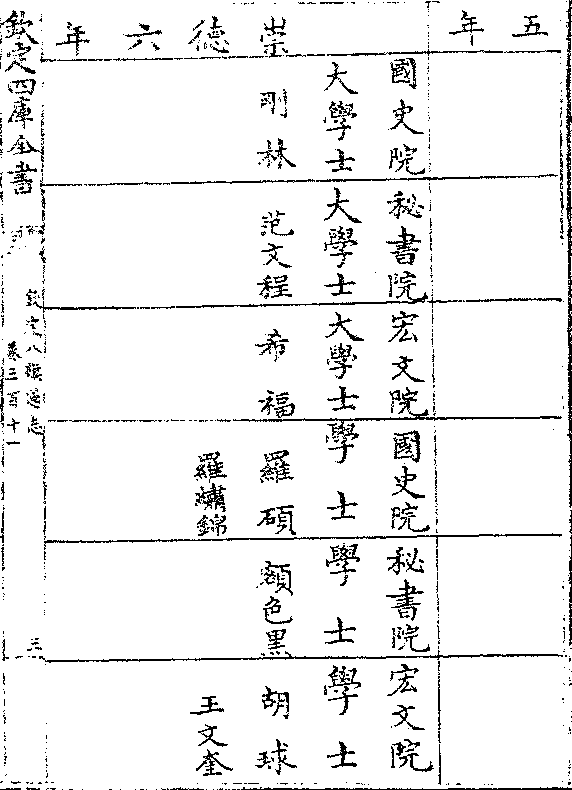 五年
國史院
大學士
秘書院
大學士
宏文院
大學士
國史院
學士
秘書院
學士
宏文院
學士
崇德六年
剛林
范文程
希福
羅碩
羅繡錦
額色黑
胡球
王文奎
欽定四庫全書
欽定八旗通志
卷三百十一
三